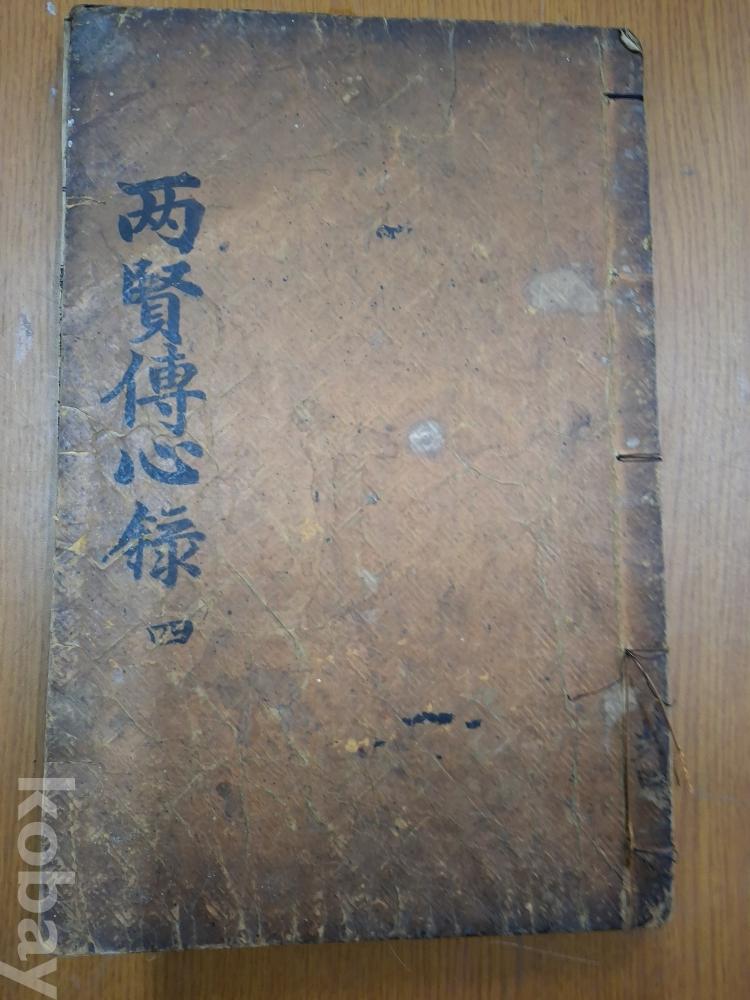 两賢傳心錄
四
kobay